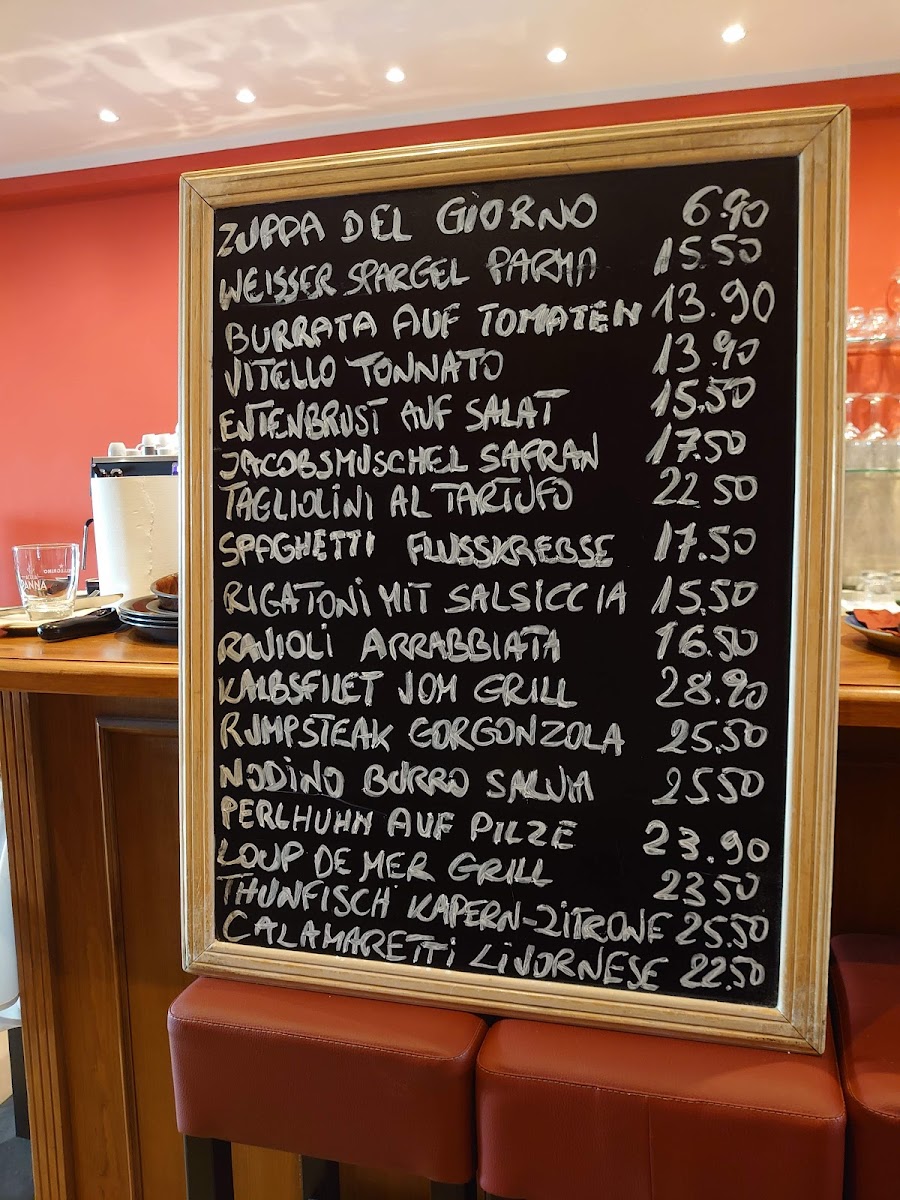 ZUPPA DEL GIORNO 6.90
WEISSER SPARGEL PARMA 15.50
BURRATA AUF TOMATEN 13.90
VITELLO TONNATO 13.90
ENTENBRUST AUF SALAT 15.50
JACOBSMUSCHEL SAFRAN 17.50
TAGLIOLINI AL TARTUFO 22 50
SPAGHETTI FLUSSKREBSE 17.50
RIGATONI MIT SALSICCIA 15.50
RAVIOLI ARRABBIATA 16.50
KALBSFILET VOM GRILL 28.90
RUMPSTEAK GORGONZOLA 25.50
NODINO BURRO SALVIA 25 50
PERLHUHN AUF PILZE 23.90
LOUP DE MER GRILL 23 50
THUNFISCH KAPERN-ZITRONE 25.50
CALAMARETTI LIVORNESE 22.50